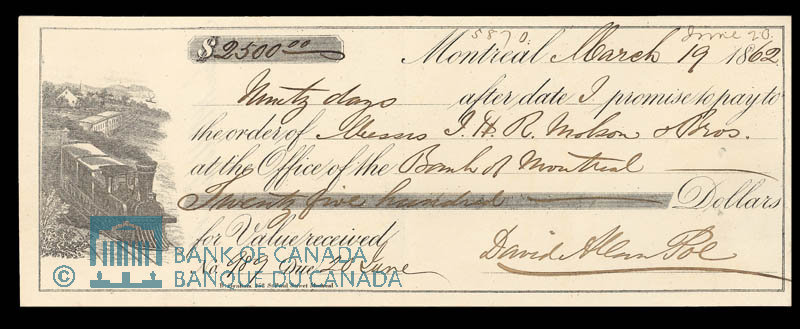 5870. June 20.
$2500.00
Montreal March 19 1862
Ninety days after date I promise to pay to
the order of Messrs J. H. R. Molson & Bros.
at the Office of the Bank of Montreal
Twenty five hundred Dollars
for Value received
No Due 20 June
David Allan Poe
© BANK OF CANADA
BANQUE DU CANADA
Montreal